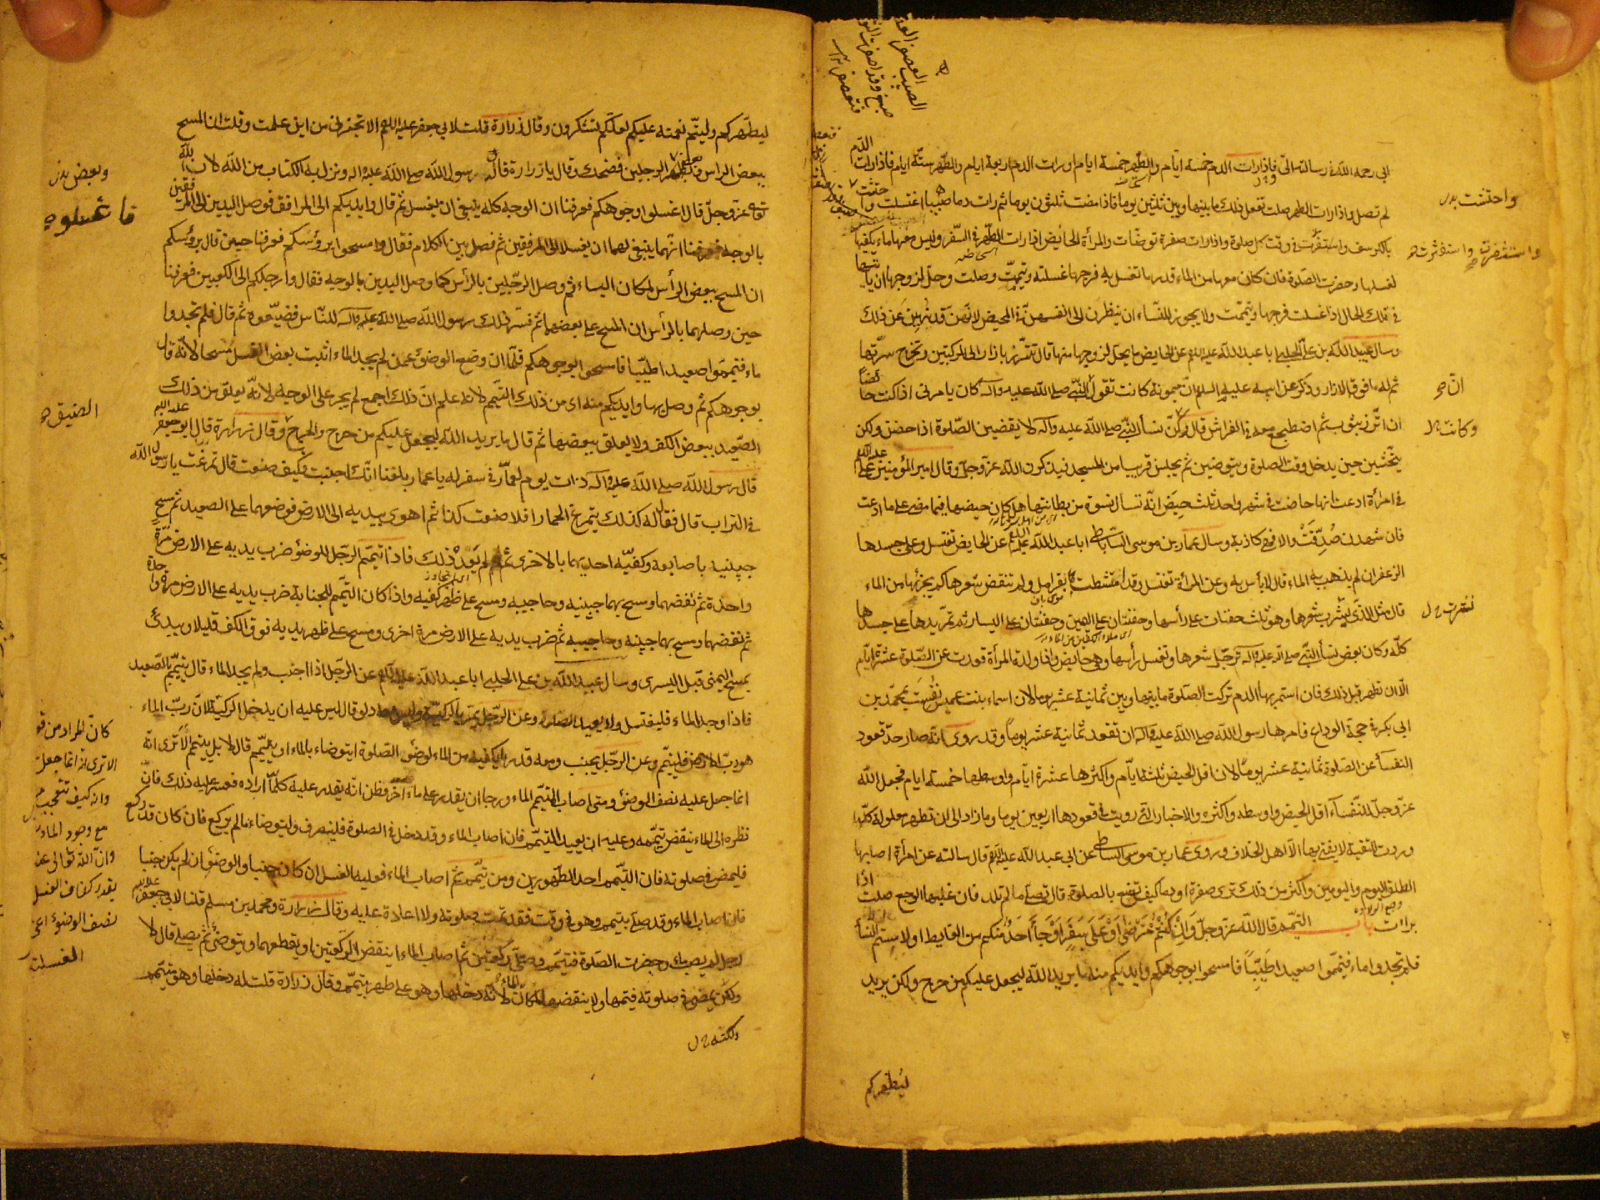 ابى رحمه الله فى رسالته الىّ فاذا رات الدم خمسة ايام والطهر خمسة ايام او رات الدم اربعة ايام والطهر ستة ايام فاذا رات الدم
لم تصل واذا رات الطهر صلت تفعل ذلك ما بينها وبين ثلثين يوما فاذا مضت ثلثون يوما ثم رات دما صبيبا اغتسلت واحتشت
بالكرسف واستثفرت فى وقت كل صلوة واذا رات صفرة توضات والمرأة الحائض اذا رات الطهر فى السفر وليس معها ماء يكفيها
لغسلها وحضرت الصلوة فان كان معها من الماء قدر ما تغسل به فرجها غسلته وتيممت وصلت وحل لزوجها ان ياتيها
فى تلك الحال اذا غسلت فرجها وتيممت ولا يجوز للنساء ان ينظرن الى انفسهن فى المحيض لانهن قد نهين عن ذلك
وسال عبيد الله بن على الحلبى ابا عبد الله عليه السلام عن الحايض ما يحل لزوجها منها قال تتزر بازار الى الركبتين وتخرج سرتها
ثم له ما فوق الازار وذكر عن ابيه عليه السلام ان ميمونة كانت تقول ان النبى صلى الله عليه وآله كان يامرنى اذا كنت حائضا
ان اتزر بثوب ثم اضطجع معه فى الفراش قال وكن نساء النبى صلى الله عليه وآله لا يقضين الصلوة اذا حضن ولكن
يتحشين حين يدخل وقت الصلوة ويتوضين ثم يجلسن قريبا من المسجد فيذكرن الله عز وجل وقال امير المؤمنين عليه السلام
فى امرأة ادعت انها حاضت فى شهر واحد ثلث حيض انه تسال نسوة من بطانتها هل كان حيضها فيما مضى على ما ادعت
فان شهدن صدقت والا فهى كاذبة وسال عمار بن موسى الساباطى ابا عبد الله عليه السلام عن الحايض تغتسل وعلى جسدها
الزعفران لم يذهب به الماء قال لا باس به وعن المرأة تغتسل وقد امتشطت بقرامل ولم تنقض شعرها كم يجزيها من الماء
قال مثل الذى يشرب شعرها وهو ثلث حفنات على رأسها وحفنتان على اليمين وحفنتان على اليسار ثم تمر يدها على جسدها
كله وكان بعض نساء النبى صلى الله عليه وآله ترجل شعرها وتغسل رأسها وهى حايض واذا ولدت المرأة قعدت عن الصلوة عشرة ايام
الا ان تطهر قبل ذلك فان استمر بها الدم تركت الصلوة ما بينها وبين ثمانية عشر يوما لان اسماء بنت عميس نفست بمحمد بن
ابى بكر فى حجة الوداع فامرها رسول الله صلى الله عليه وآله ان تقعد ثمانية عشر يوما وقد روى انه صار حد قعود
النفسآء عن الصلوة ثمانية عشر يوما لان اقل الحيض ثلثة ايام واكثرها عشرة ايام واوسطها خمسة ايام فجعل الله
عز وجل للنفسآء اقل الحيض واوسطه واكثره والاخبار التى رويت فى قعودها اربعين يوما وما زاد الى ان تطهر معلولة كلها
وردت للتقية لا يفتى بها الا اهل الخلاف وروى عمار بن موسى الساباطى عن ابى عبد الله عليه السلام قال سالته عن امرأة اصابها
الطلق اليوم واليومين واكثر من ذلك ترى صفرة او دما كيف تصنع بالصلوة قال تصلى ما لم تلد فان غلبها الوجع صلت اذا
برات باب التيمم قال الله عز وجل وان كنتم مرضى او على سفر او جاء احد منكم من الغايط او لامستم النساء
فلم تجدوا ماء فتيمموا صعيدا طيبا فامسحوا بوجوهكم وايديكم منه ما يريد الله ليجعل عليكم من حرج ولكن يريد
ليطهركم
واحتشت بدل
واستثفرت
ان
وكانت
ليطهركم وليتم نعمته عليكم لعلكم تشكرون وقال زرارة قلت لابى جعفر عليه السلام الا تخبرنى من اين علمت وقلت ان المسح
ببعض الراس وبعض الرجلين فضحك وقال يا زرارة قاله رسول الله صلى الله عليه وآله ونزل به الكتاب من الله لان الله
عز وجل قال فاغسلوا وجوهكم فعرفنا ان الوجه كله ينبغى ان يغسل ثم قال وايديكم الى المرافق فوصل اليدين الى المرفقين
بالوجه فعرفنا انهما ينبغى لهما ان يغسلا الى المرفقين ثم فصل بين الكلام فقال وامسحوا برؤسكم فعرفنا حين قال برؤسكم
ان المسح ببعض الرأس لمكان الباء ثم وصل الرجلين بالرأس كما وصل اليدين بالوجه فقال وارجلكم الى الكعبين فعرفنا
حين وصلهما بالرأس ان المسح على بعضهما ثم فسر ذلك رسول الله صلى الله عليه وآله للناس فضيعوه ثم قال فلم تجدوا
ماء فتيمموا صعيدا طيبا فامسحوا بوجوهكم فلما ان وضع الوضوء عمن لم يجد الماء اثبت بعض الغسل مسحا لانه قال
بوجوهكم ثم وصل بها وايديكم منه اى من ذلك التيمم لانه علم ان ذلك اجمع لم يجر على الوجه لانه يعلق من ذلك
الصعيد ببعض الكف ولا يعلق ببعضها ثم قال ما يريد الله ليجعل عليكم من حرج والحرج الضيق وقال زرارة قال ابو جعفر عليه السلام
قال رسول الله صلى الله عليه وآله ذات يوم لعمار فى سفر له يا عمار بلغنا انك اجنبت فكيف صنعت قال تمرغت يا رسول الله
فى التراب قال فقال له كذلك يتمرغ الحمار افلا صنعت كذا ثم اهوى بيديه الى الارض فوضعهما على الصعيد ثم مسح
جبينيه باصابعه وكفيه احديهما بالاخرى ثم لم يعد ذلك فاذا تيمم الرجل للوضوء ضرب يديه على الارض مرة
واحدة ثم نفضهما ومسح بهما جبينيه وحاجبيه ومسح على ظهر كفيه واذا كان التيمم للجنابة ضرب يديه على الارض مرة واحدة
ثم نفضهما ومسح بهما جبينه وحاجبيه ثم ضرب يديه على الارض مرة اخرى ومسح على ظهر يديه فوق الكف قليلا ويبدئ
بمسح اليمنى قبل اليسرى وسال عبيد الله بن على الحلبى ابا عبد الله عليه السلام عن الرجل اذا اجنب ولم يجد الماء قال يتيمم بالصعيد
فاذا وجد الماء فليغتسل ولا يعيد الصلوة وعن الرجل يمر بالركية وليس معه دلو قال ليس عليه ان يدخل الركية لان رب الماء
هو رب الارض فليتيمم وعن الرجل يجنب ومعه قدر ما يكفيه من الماء لوضوء الصلوة ايتوضاء بالماء او يتيمم قال لا بل يتيمم الا ترى انه
انما جعل عليه نصف الوضوء ومتى اصاب المتيمم الماء ورجا ان يقدر على ماء آخر وظن انه يقدر عليه كلما اراده فعسر عليه ذلك فان
نظره الى الماء ينقض تيممه وعليه ان يعيد التيمم فان اصاب الماء وقد دخل فى الصلوة فلينصرف وليتوضاء ما لم يركع فان كان قد ركع
فليمض فى صلوته فان التيمم احد الطهورين ومن تيمم ثم اصاب الماء فعليه الغسل ان كان جنبا والوضوء ان لم يكن جنبا
فان اصاب الماء وقد صلى بتيمم وهو فى وقت فقد تمت صلوته ولا اعادة عليه وقال زرارة ومحمد بن مسلم قلنا لابى جعفر عليه السلام
رجل لم يصب ماء وحضرت الصلوة فتيمم وصلى ركعتين ثم اصاب الماء اينقض الركعتين او يقطعهما ويتوضى ثم يصلى قال لا
ولكنه يمضى فى صلوته فيتمها ولا ينقضها لمكان الماء لانه دخلها وهو على طهر بتيمم وقال زرارة قلت له دخلها وهو متيمم
وبعض بدل
فاغسلوا
الضيق